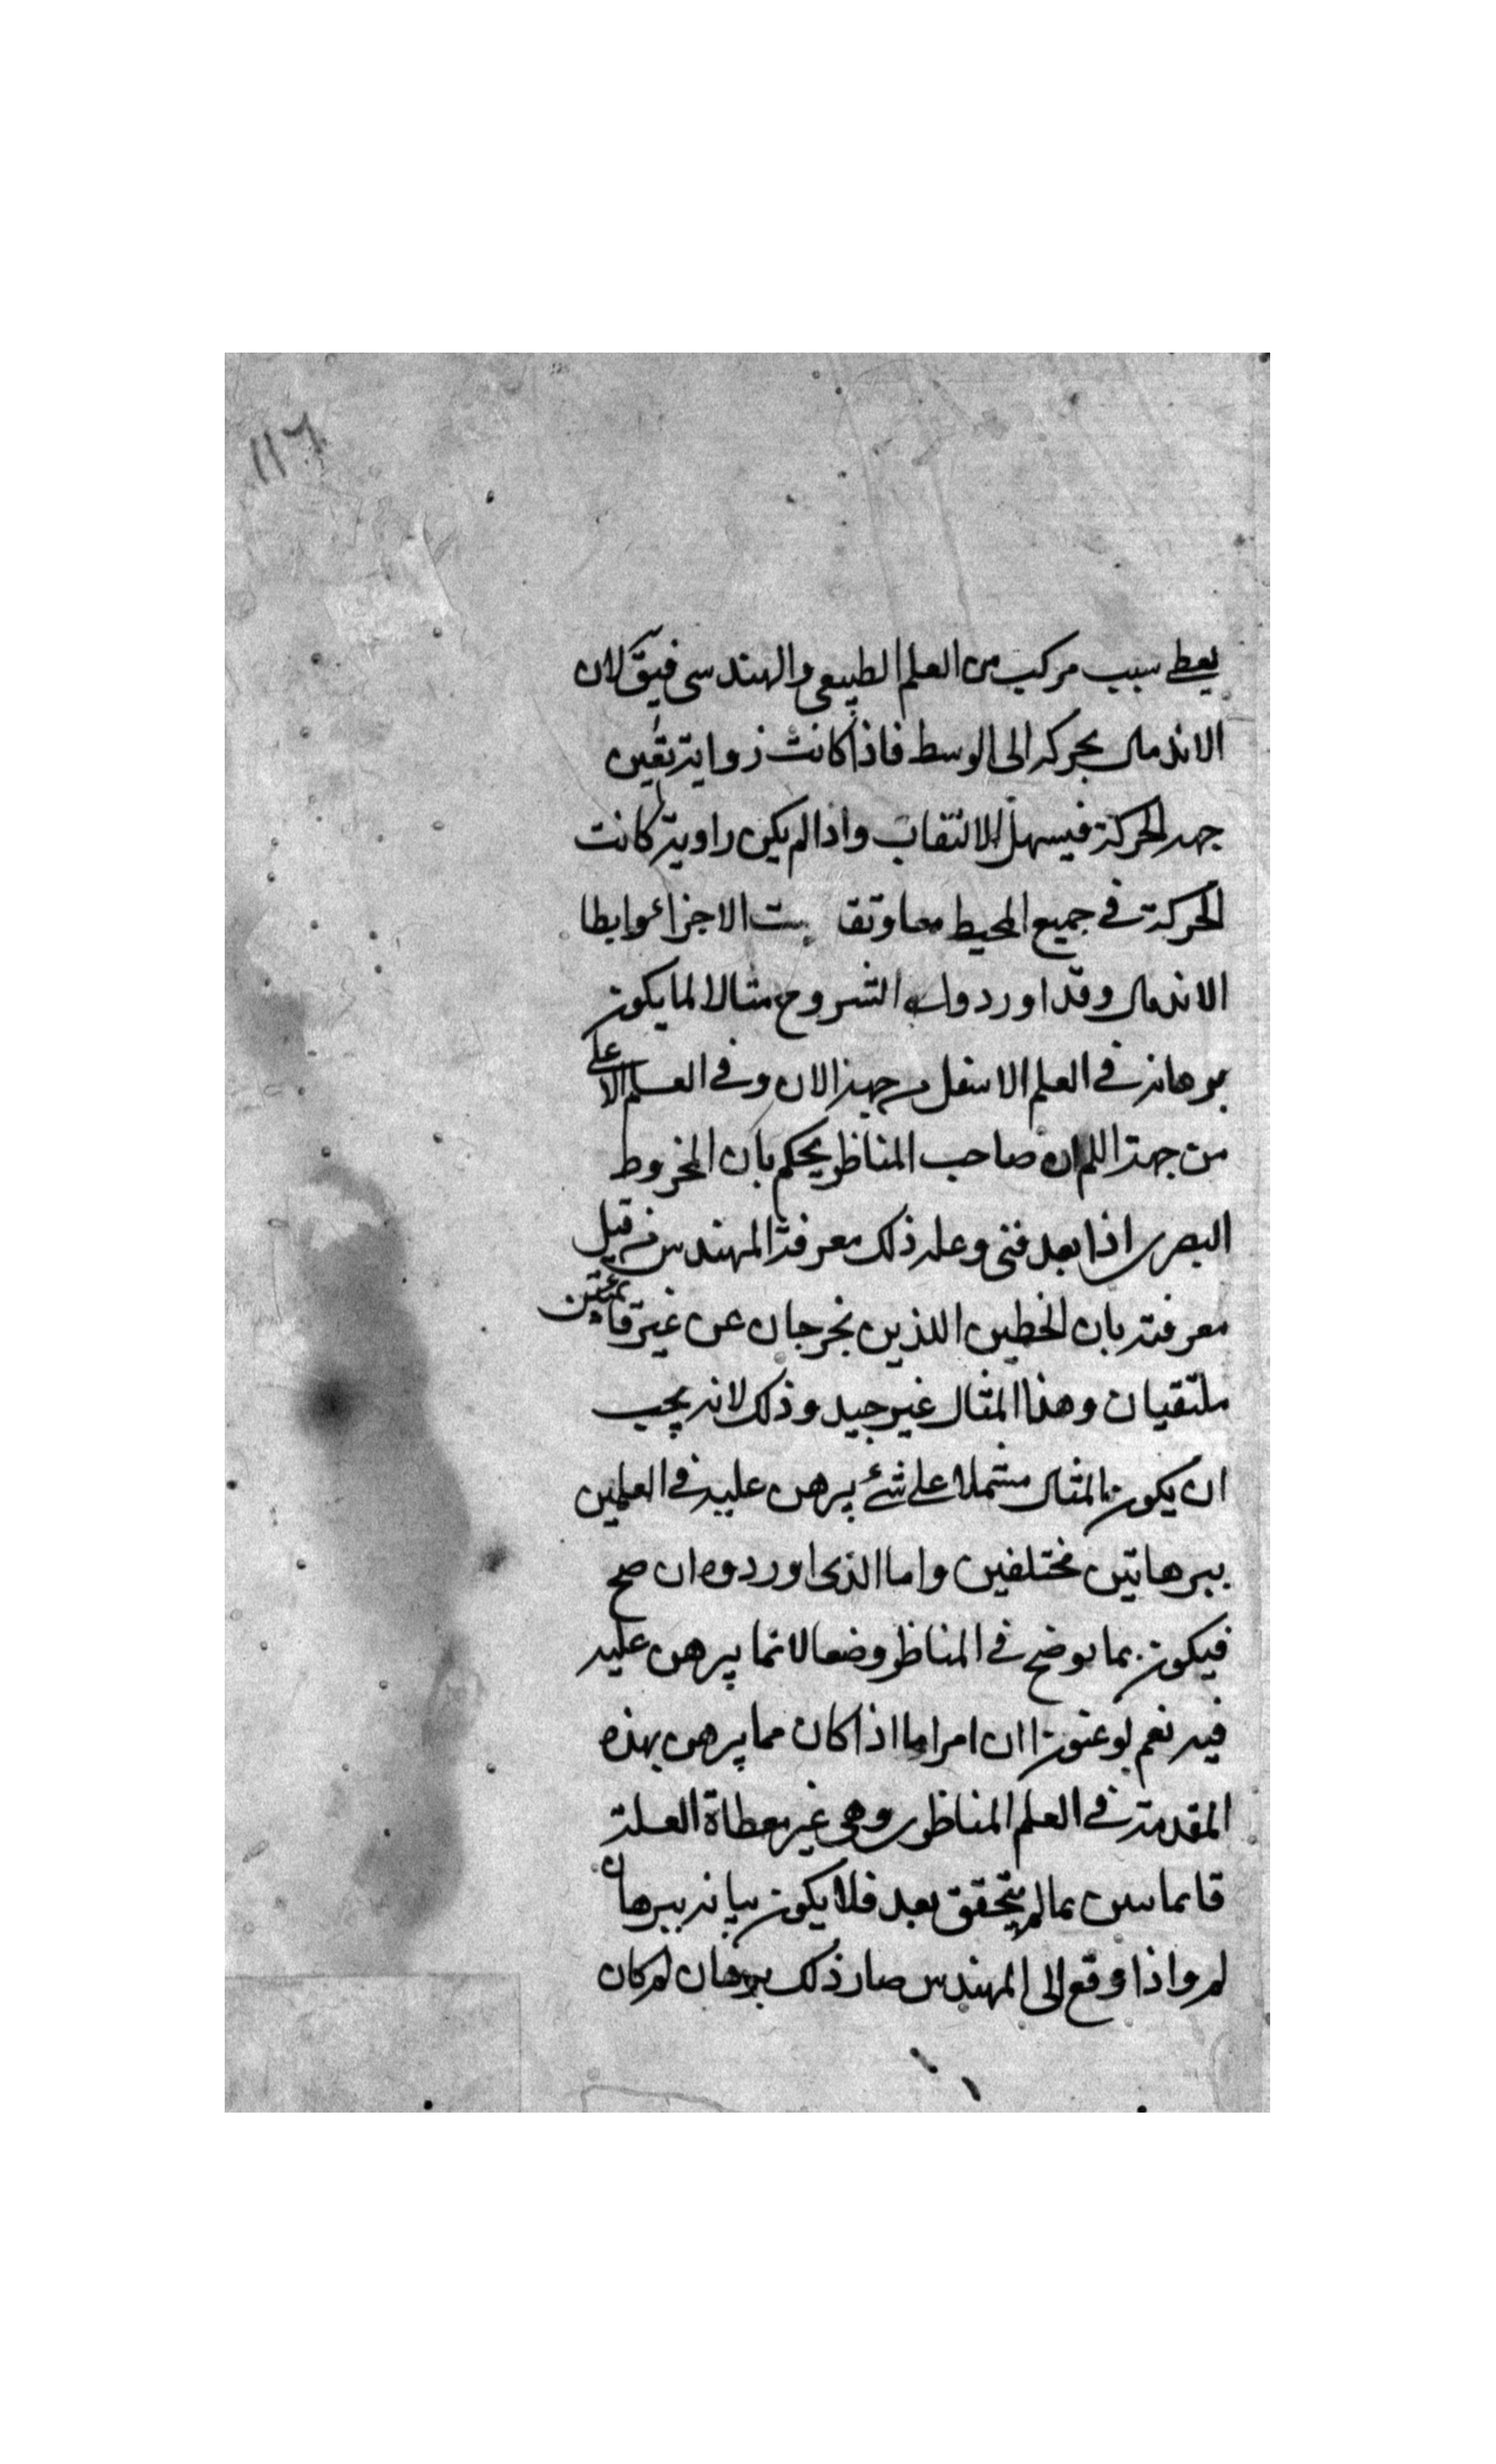 ١١٦
يعطى سبب مركب من العلم الطبيعى والهندسى فيقَ لان
الاندمال بحركة الى الوسط فاذا كانت زواية تعين
جهة الحركة فيسهل الالتقات واذا لم يكن زاوية كانت
الحركة فى جميع المحيط معا وتقا بت الاجزاء وابطا
الاندمال وقد اوردوا الشروح مثالا لما يكون
برهانه فى العلم الاسفل من جهة الان وفى العلم الاعلى
من جهة اللم ان صاحب المناظر يحكم بان المخروط
البصرى اذا بعد فنى وعلة ذلك معرفة المهندس من قبل
معرفته بان الخطين اللذين يخرجان عن غير قائمتين
ملتقيان وهذا المثال غير جيد وذلك لانه يجب
ان يكون المثال مشتملا على شئ يبرهن عليه فى العلمين
ببرهانين مختلفين واما الذى اوردوه ان صح
فيكون بما يوضح فى المناظر وضعا لا انما يبرهن عليه
فيه نعم لو عنون ان امرا ما اذا كان مما يبرهن بهذه
المقدمة فى العلم المناظرى وهى غير معطاة العلة
فانما تبين بما لم يتحقق بعد فلا يكون بيانه ببرهان
لم واذا وقع الى المهندس صار ذلك برهان لم كان